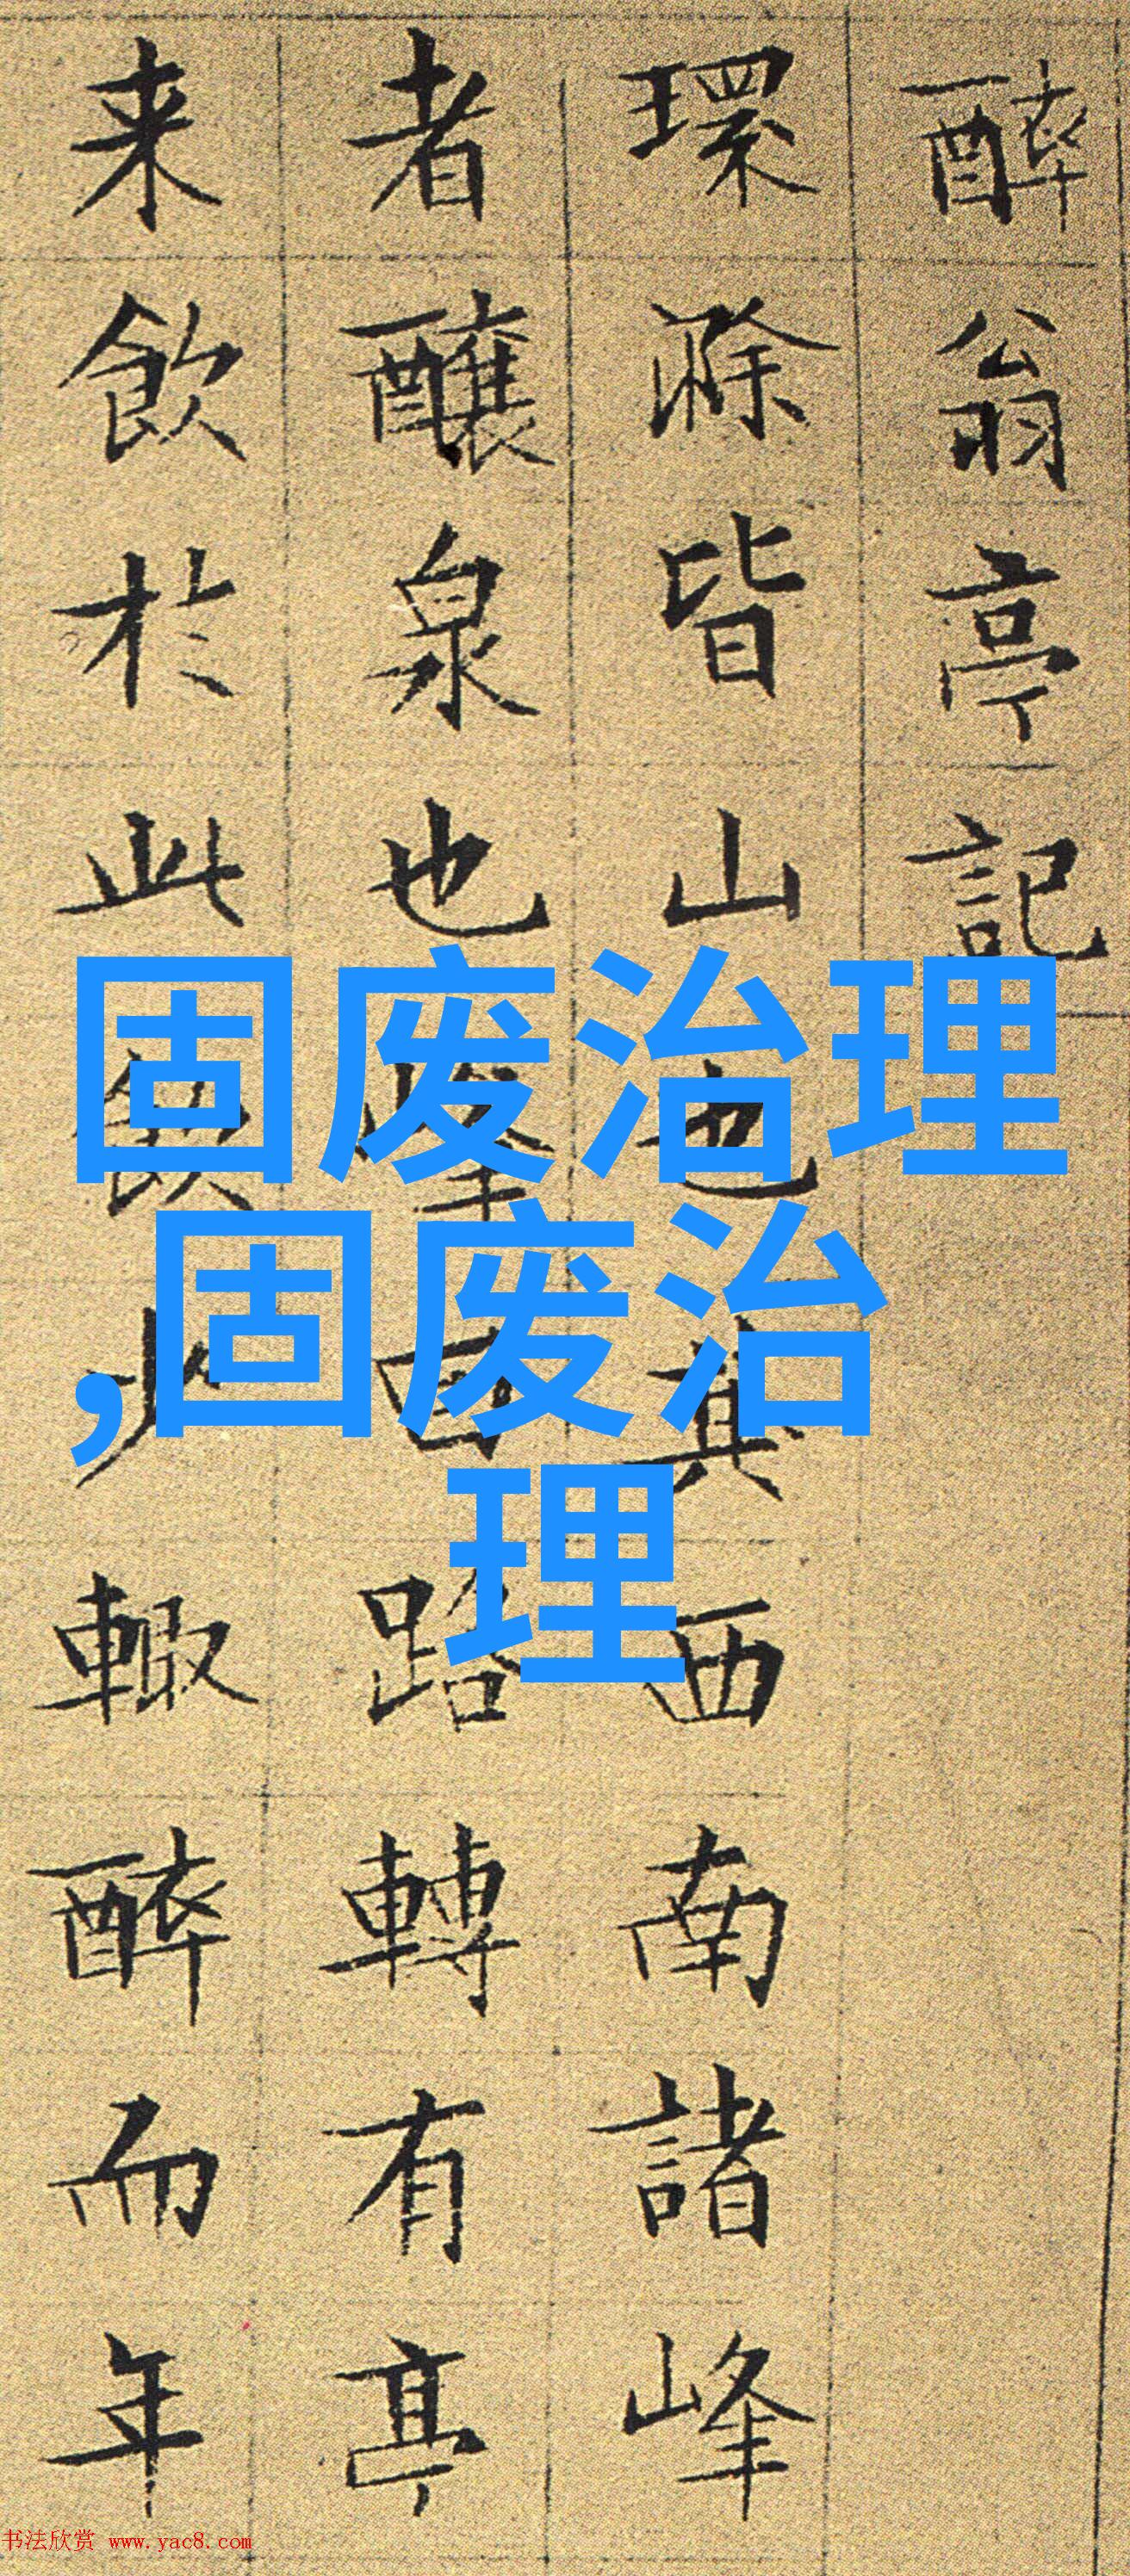 醉翁亭記
環滁皆山也其西南諸峰
者釀泉也峰回路轉有亭
来飲於此飲少輒醉而年
固废治理
,固废治
理
书法欣赏 www.yac8.com